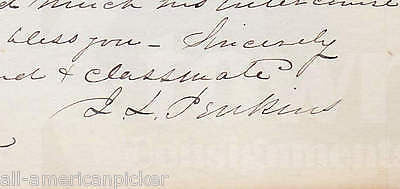 much his intercourse
bless you - Sincerely
& classmate
J. L. Perkins
© all-americanpicker